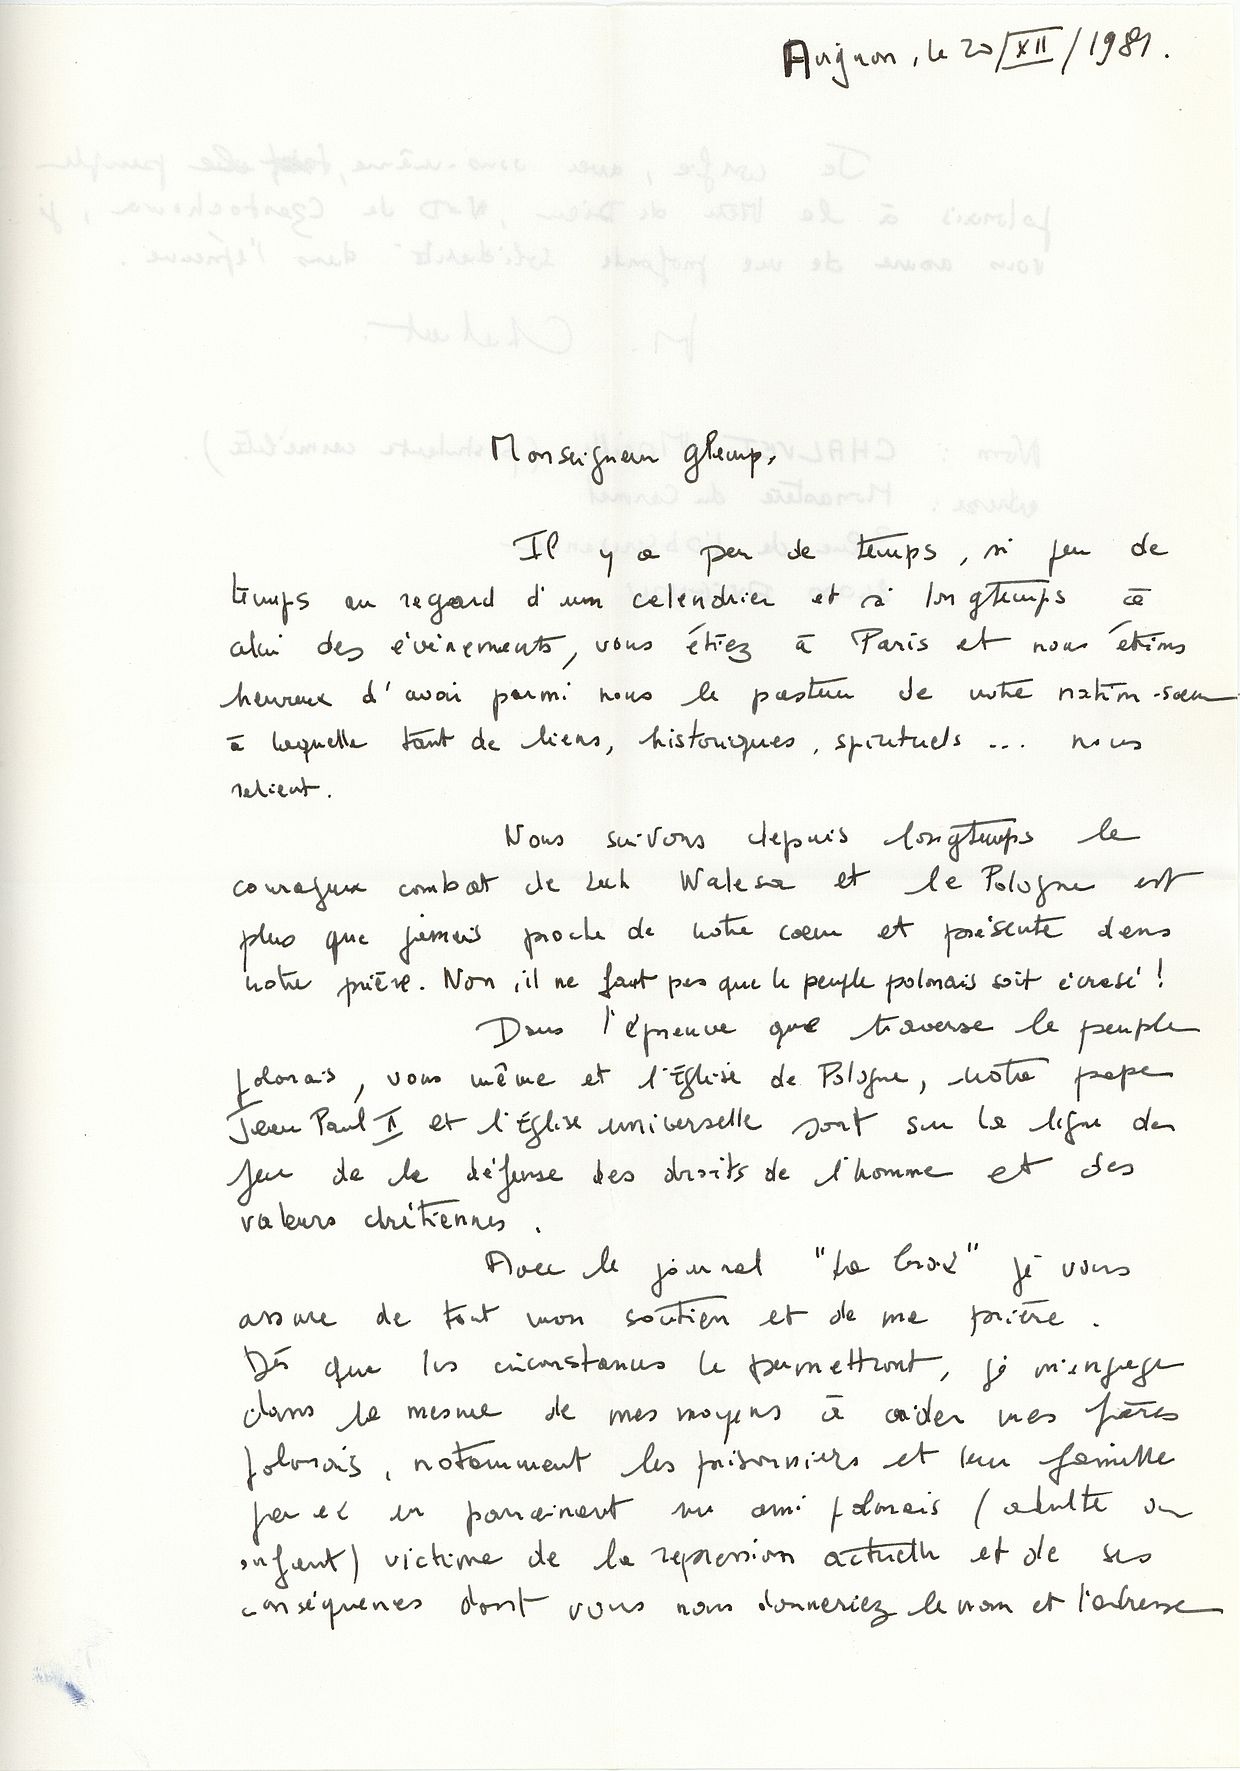 Avignon, le 20/XII/1981.
Monseigneur Glemp,
Il y a peu de temps, si peu de
temps au regard d'un calendrier et si longtemps à
celui des événements, vous étiez à Paris et nous étions
heureux d'avoir parmi nous le pasteur de notre nation-soeur
à laquelle tant de liens, historiques, spirituels ... nous
relient.
Nous suivons depuis longtemps le
courageux combat de Lech Walesa et la Pologne est
plus que jamais proche de notre coeur et présente dans
notre prière. Non, il ne faut pas que le peuple polonais soit écrasé !
Dans l'épreuve que traverse le peuple
polonais, vous même et l'Église de Pologne, notre pape
Jean Paul II et l'Église universelle sont sur la ligne de
feu de la défense des droits de l'homme et des
valeurs chrétiennes.
Avec le journal "La Croix" je vous
assure de tout mon soutien et de ma prière.
Dès que les circonstances le permettront, je m'engage
dans la mesure de mes moyens à aider mes frères
polonais, notamment les prisonniers et leur famille
en parrainant un ami polonais (adulte ou
enfant) victime de la répression actuelle et de ses
conséquences dont vous nous donneriez le nom et l'adresse
Je confie, avec vous-même, le peuple
polonais à la Mère de Dieu, N.D de Czestochowa, je
vous assure de ma profonde solidarité dans l'épreuve.
Chalvet.
Nom : CHALVET
adresse : Monastère du Carmel